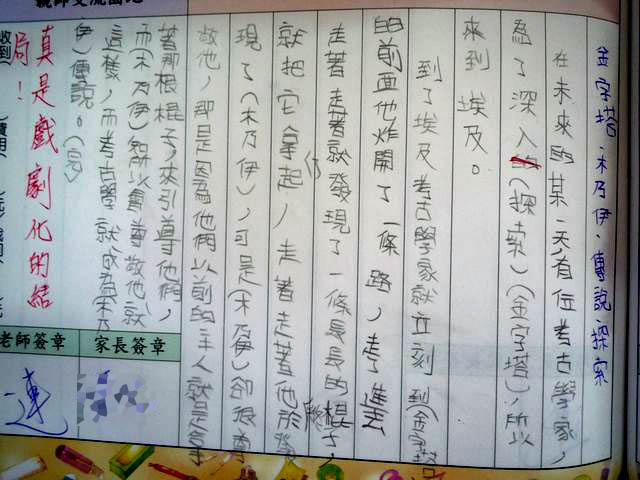 親師交流園地
金字塔 木乃伊 傳說探索
在未來的某一天,有位考古學家,
為了深入(探索)(金字塔),所以
來到埃及。
到了埃及考古學家就立刻到(金字塔
的前面他炸開了一條路,走了進去
走著走著就發現了一條長長的棍子,
就把它拿起,走著走著他於發
現了(木乃伊),可是(木乃伊)卻很尊
敬他,那是因為他們以前的主人就是拿
著那根棍子,來引導他們,
而(木乃伊)就
這樣,而考古學就成為(木乃
伊)傳說。(完)
真是戲劇化的結
局!
老師簽章
家長簽章
連